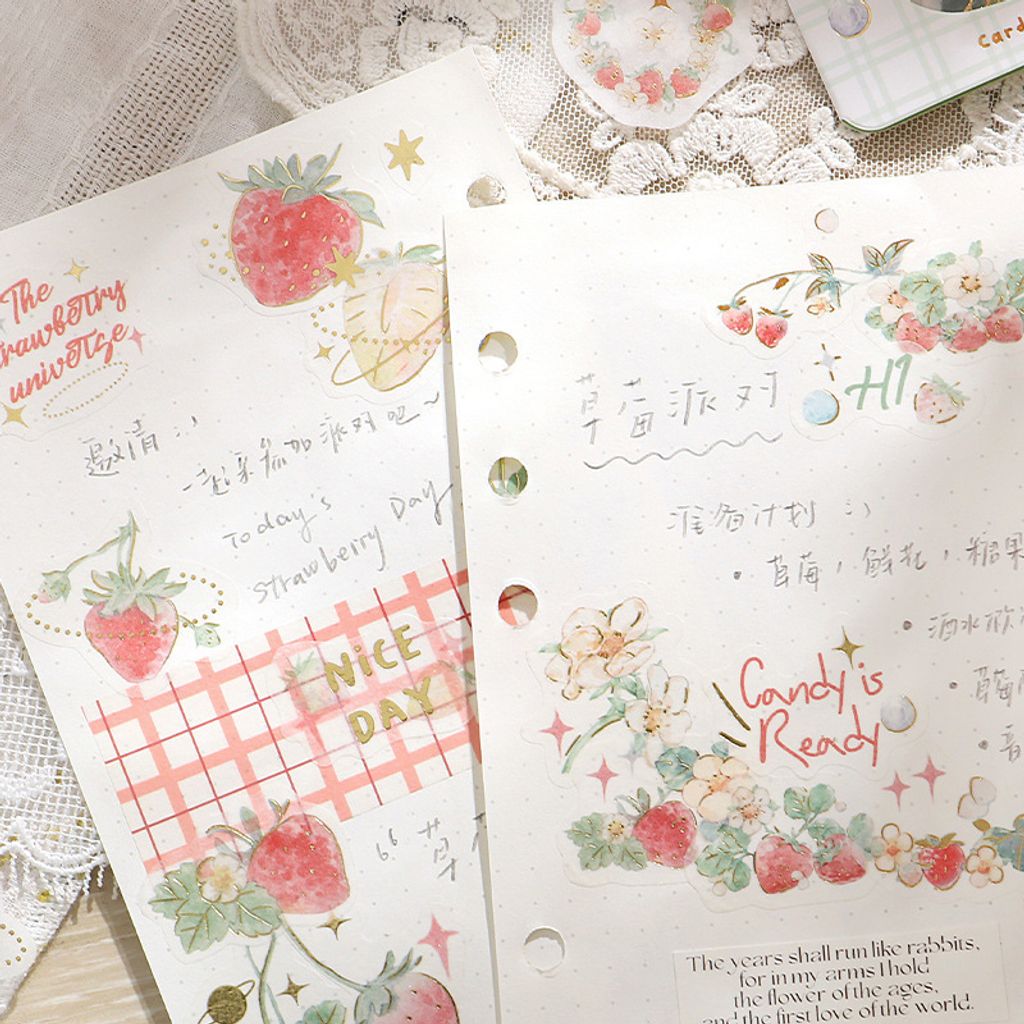 Card
The
strawberry
universe
邀请 :)
一起来参加派对吧~
Today's
Strawberry Day
NiCE
DAY
“草
HI
草莓派对
准备计划 :)
• 草莓，鲜花，糖果
• 酒水饮
• 草莓
• 音
Candy is
Ready
The years shall run like rabbits,
for in my arms I hold
the flower of the ages,
and the first love of the world.